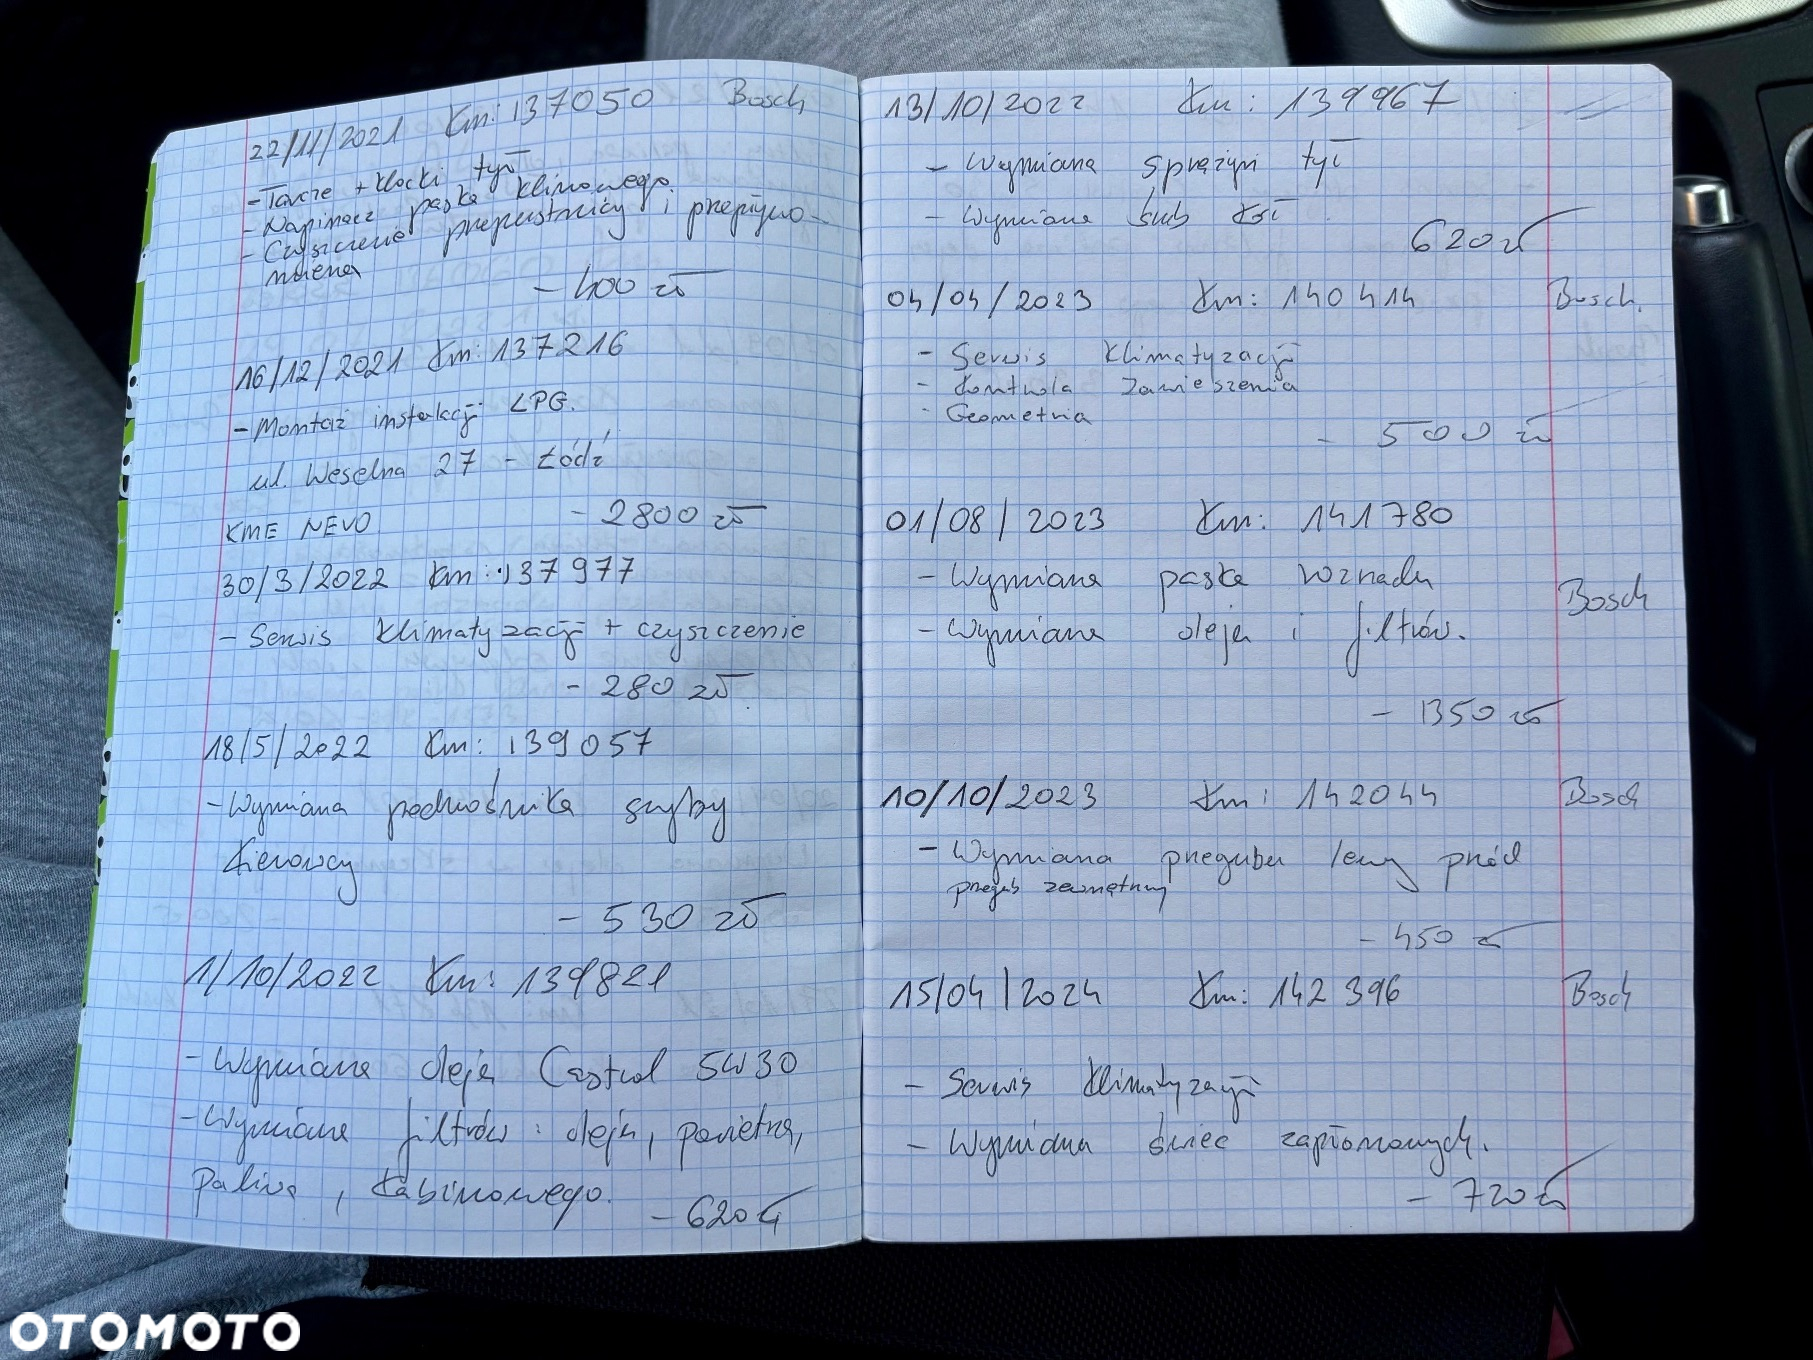 22/11/2021 Km: 137050 Bosch
- Tarcze + klocki tył
- Napinacz paska klinowego.
- Czyszczenie przepustnicy i przepływo-
mierza
- 400 zł
16/12/2021 Km: 137216
- Montaż instalacji LPG.
ul. Weselna 27 - Łódź
KME NEVO - 2800 zł
30/3/2022 Km: 137977
- Serwis klimatyzacji + czyszczenie
- 280 zł
18/5/2022 Km: 139057
- Wymiana podnośnika szyby
kierowcy
- 530 zł
1/10/2022 Km: 139821
- Wymiana oleju Castrol 5W30
- Wymiana filtrów: oleju, powietrza,
paliwa, kabinowego.
- 620 zł
13/10/2022 Km: 139967
- Wymiana sprężyn tył
- Wymiana śrub kół
620 zł
04/04/2023 Km: 140414 Bosch.
- Serwis klimatyzacji
- Kontrola zawieszenia
- Geometria
- 500 zł
01/08/2023 Km: 141780
- Wymiana paska rozrządu
Bosch
- Wymiana oleju i filtrów.
- 1350 zł
10/10/2023 Km: 142044 Bosch
- Wymiana przegubu lewy przód
przegub zewnętrzny
- 450 zł
15/04/2024 Km: 142396 Bosch
- Serwis klimatyzacji
- Wymiana świec zapłonowych.
- 720 zł
OTOMOTO